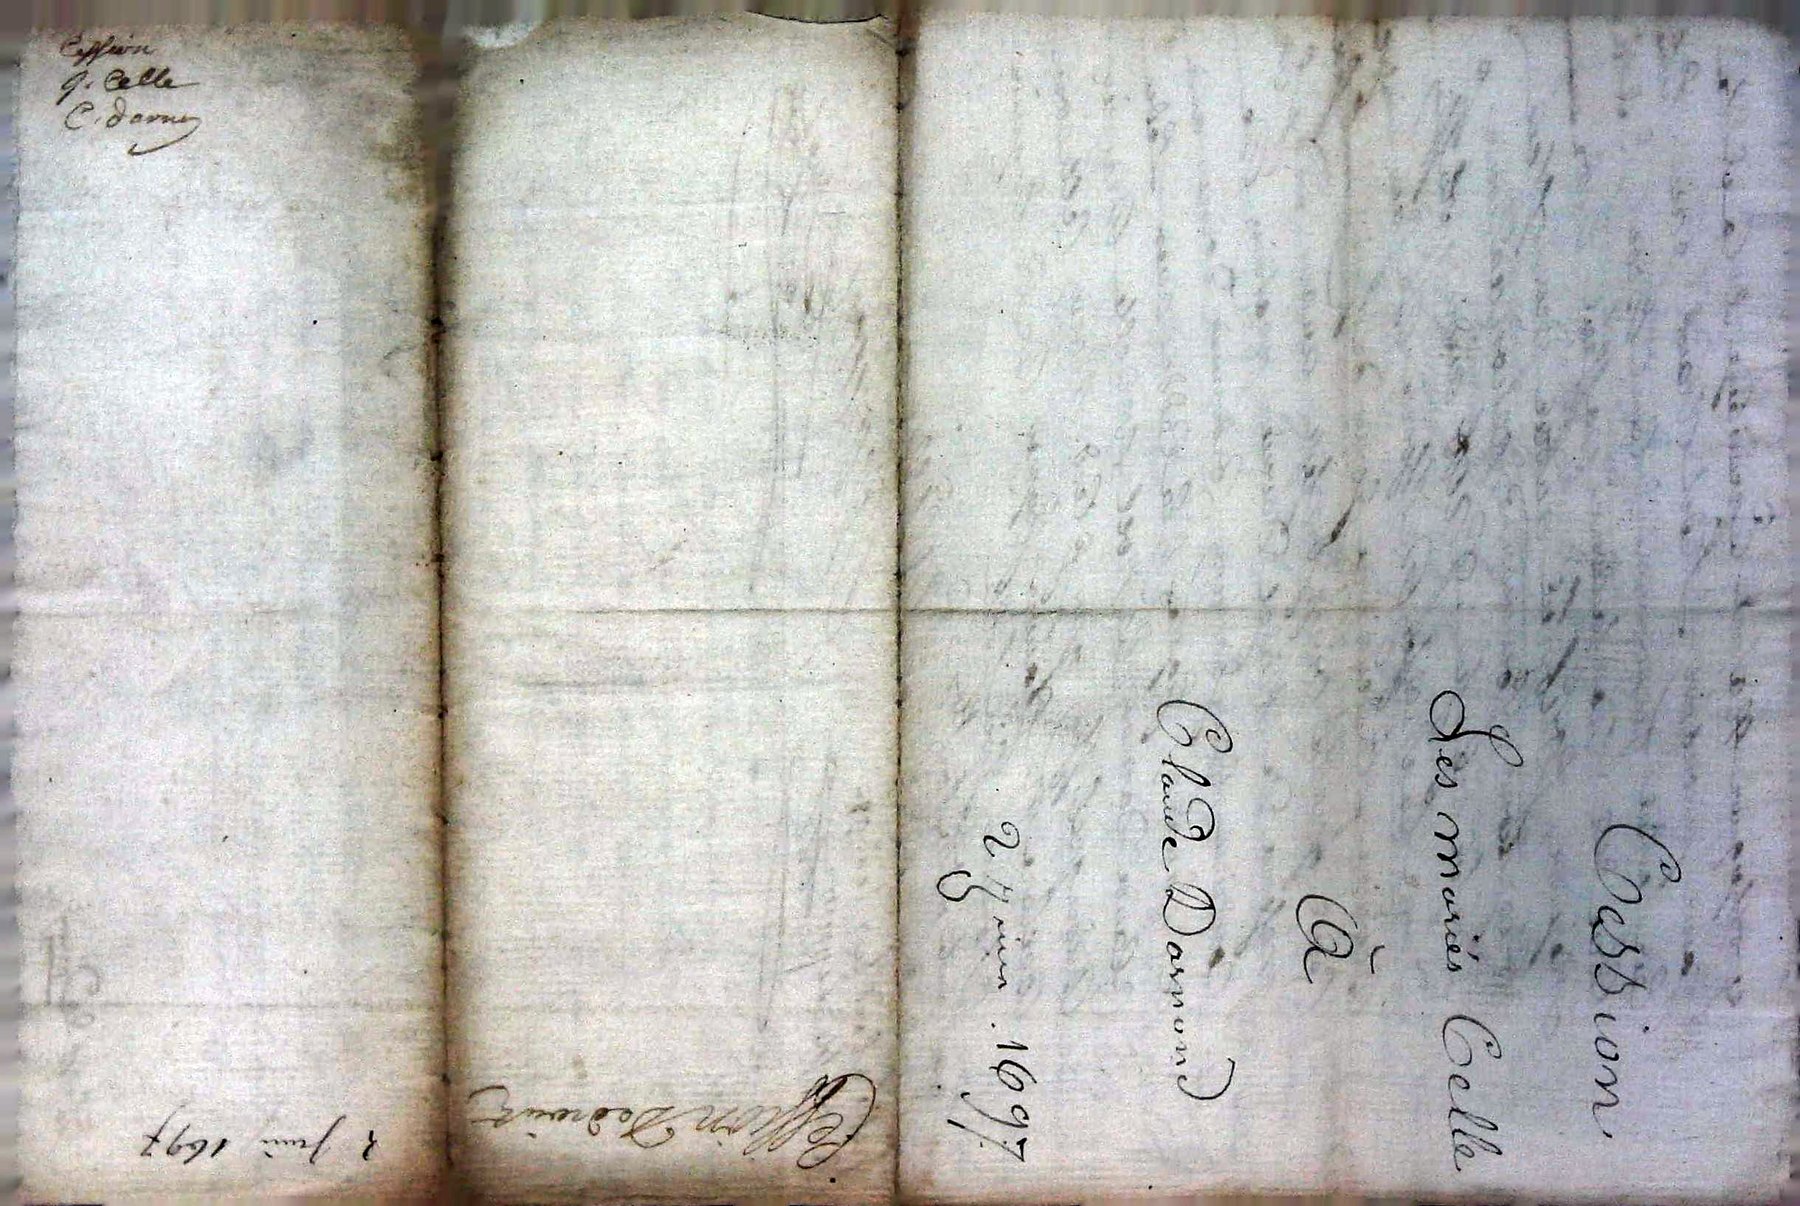 Cession
q. Celle
C. darmon
Cession
Les mariés Celle
à
Claude Darmond
2 Juin 1697
Cession de droits
2 Juin 1697